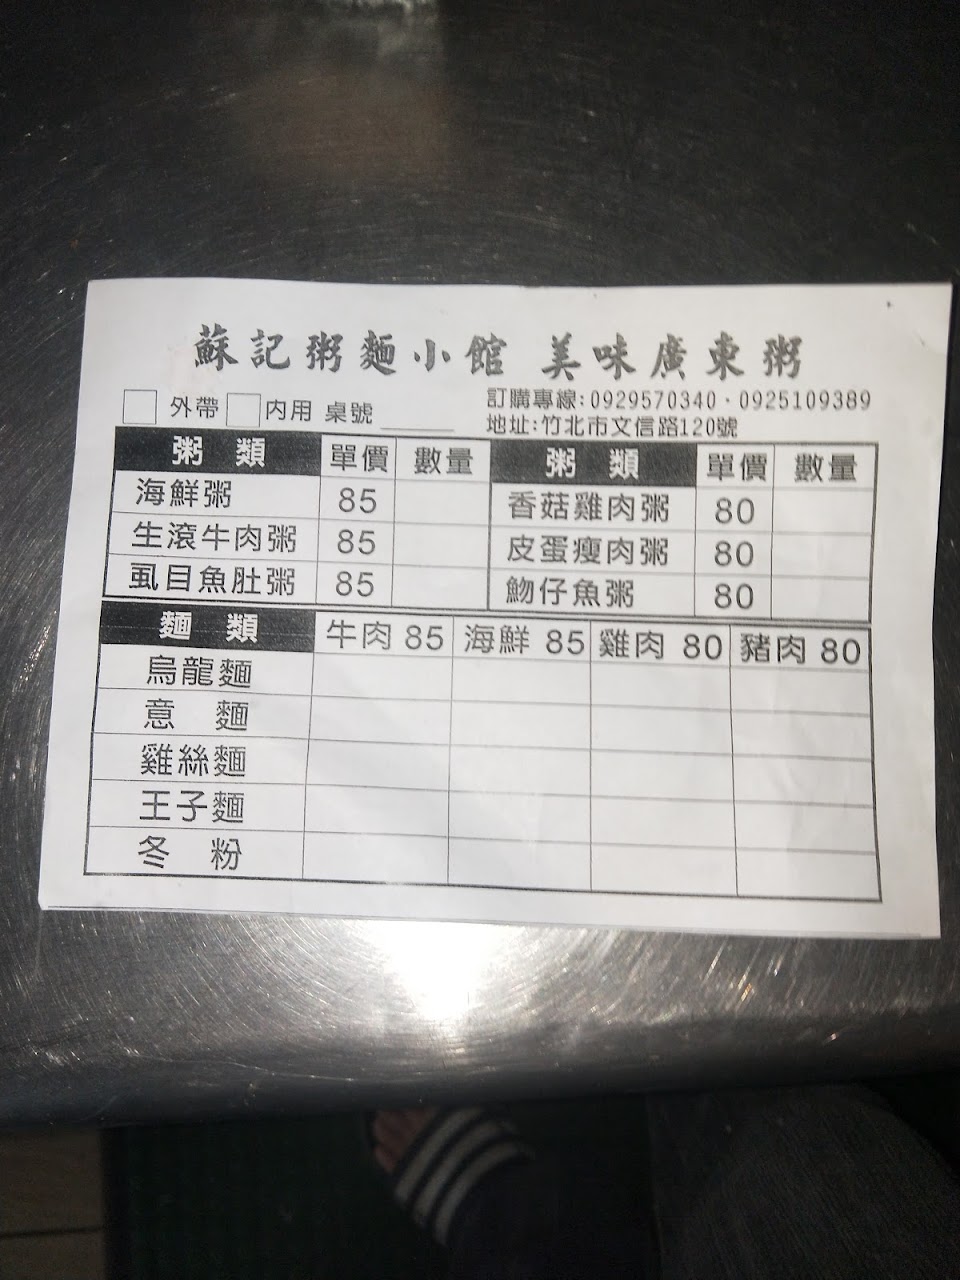 蘇記粥麵小館 美味廣東粥
外帶 內用 桌號
訂購專線:0929570340、0925109389
地址:竹北市文信路120號
粥 類 單價 數量 粥 類 單價 數量
海鮮粥 85 香菇雞肉粥 80
生滾牛肉粥 85 皮蛋瘦肉粥 80
虱目魚肚粥 85 魩仔魚粥 80
麵 類 牛肉 85 海鮮 85 雞肉 80 豬肉 80
烏龍麵
意 麵
雞絲麵
王子麵
冬 粉